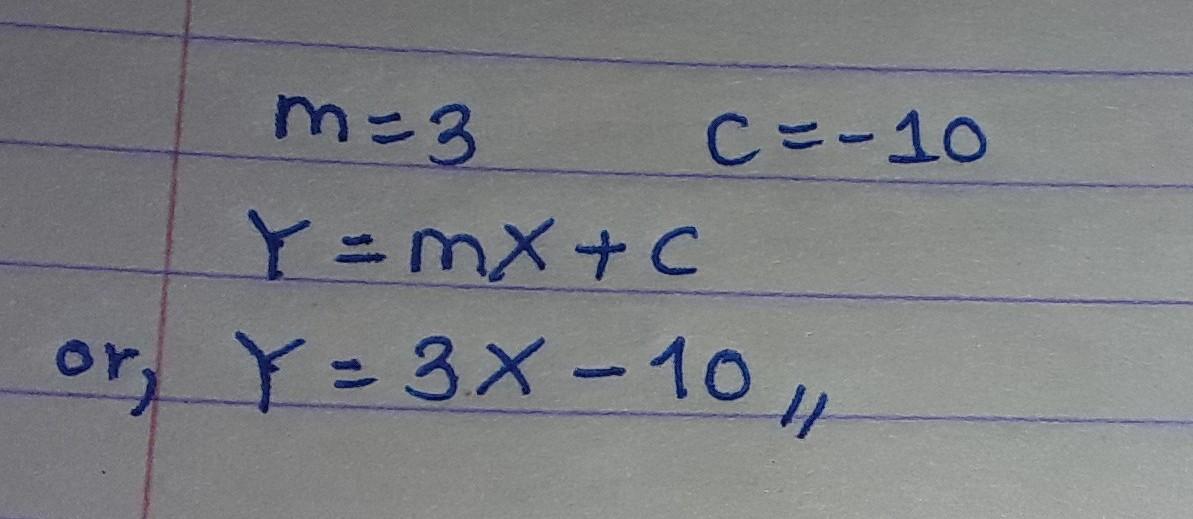 m=3 C=-10
Y=mX+C
or, Y=3X-10,,